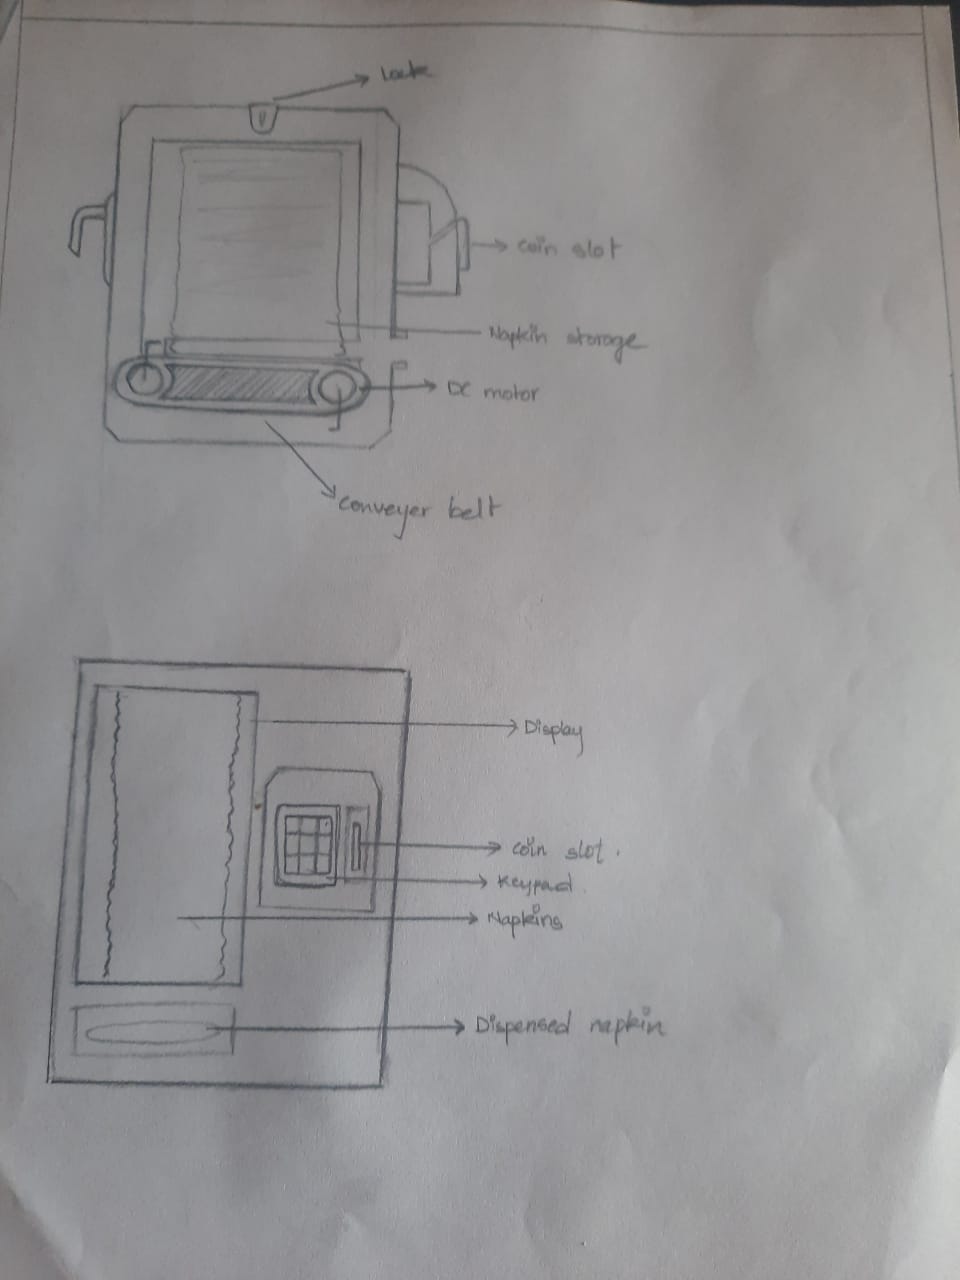 Lock
coin slot
Napkin storage
DC motor
conveyer belt
Display
coin slot.
Keypad.
Napkins
Dispensed napkin